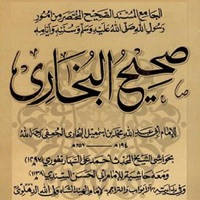 الجامع المسند الصحيح المختصر من أمور
رسول الله صلى الله عليه وسلم وسننه وأيامه
صحيح البخاري
للإمام أبي عبد الله محمد بن إسمعيل البخاري الجعفي رحمه الله
١٩٤ - ٢٥٦
بحواشي الشيخ المحدث أحمد علي السهارنفوري (١٢٩٧)
ومعه حاشية الإمام أبي الحسن السندي (١١٣٨)